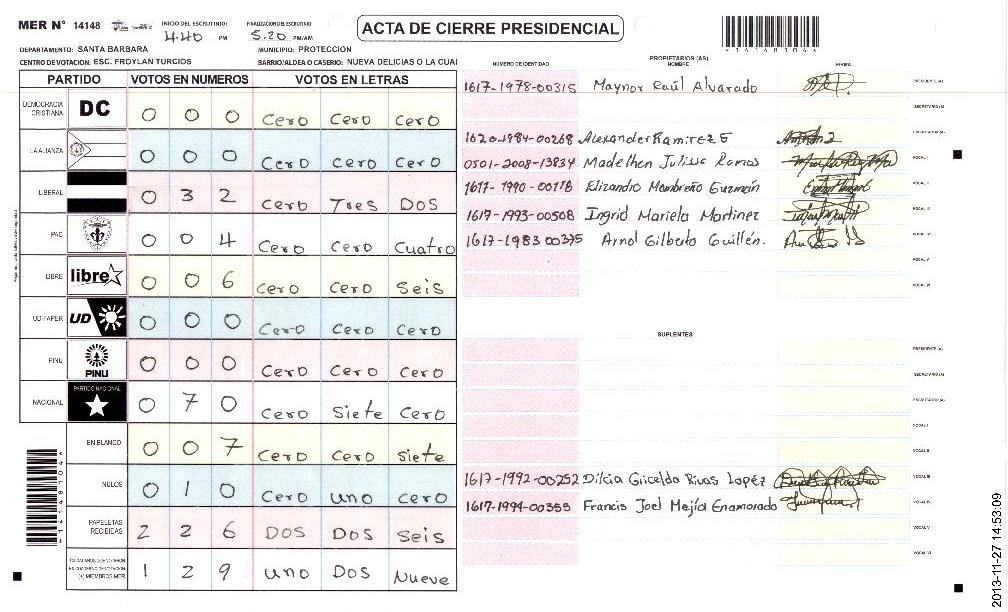 MER N° 14148
INICIO DEL ESCRUTINIO: 4:40 PM
FINALIZACION DEL ESCRUTINIO 5:20 PM/AM
ACTA DE CIERRE PRESIDENCIAL
DEPARTAMENTO: SANTA BARBARA MUNICIPIO: PROTECCION
CENTRO DE VOTACION: ESC. FROYLAN TURCIOS BARRIO/ALDEA O CASERIO: NUEVA DELICIAS O LA CUAL
PARTIDO VOTOS EN NUMEROS VOTOS EN LETRAS
DEMOCRACIA CRISTIANA DC 0 0 0 Cero Cero Cero
LA ALIANZA 0 0 0 Cero Cero Cero
LIBERAL 0 3 2 Cero Tres Dos
PAC 0 0 4 Cero Cero Cuatro
LIBRE libre 0 0 6 Cero Cero Seis
UD-FAPER UD 0 0 0 Cero Cero Cero
PINU PINU 0 0 0 Cero Cero Cero
NACIONAL PARTIDO NACIONAL 0 7 0 Cero Siete Cero
EN BLANCO 0 0 7 Cero Cero Siete
NULOS 0 1 0 Cero uno cero
PAPELETAS RECIBIDAS 2 2 6 DOS DOS Seis
CIUDADANOS QUE VOTARON EN CUADERNO DE VOTACION (+) MIEMBROS MER 1 2 9 uno DOS Nueve
PROPIETARIOS (AS)
NUMERO DE IDENTIDAD NOMBRE FIRMA
1617-1978-00315 Maynor Raúl Alvarado PRESIDENTE (A)
SECRETARIO (A)
1620-1984-00268 Alexander Ramirez E ESCRUTADOR (A)
0501-2008-13834 Madelhen Julissa Ramos VOCAL I
1617-1990-00178 Elizandro Mombreño Guzmán VOCAL II
1617-1993-00508 Ingrid Mariela Martinez VOCAL III
1617-1983 00375 Arnol Gilberto Guillén. VOCAL IV
VOCAL V
VOCAL VI
SUPLENTES
PRESIDENTE (A)
SECRETARIO (A)
ESCRUTADOR (A)
VOCAL I
VOCAL II
1617-1992-00252 Dilcia Griselda Rivas Lopéz VOCAL III
1617-1994-00355 Francis Joel Mejía Enamorado VOCAL IV
VOCAL V
VOCAL VI
*14148104*
2013-11-27 14:53:09